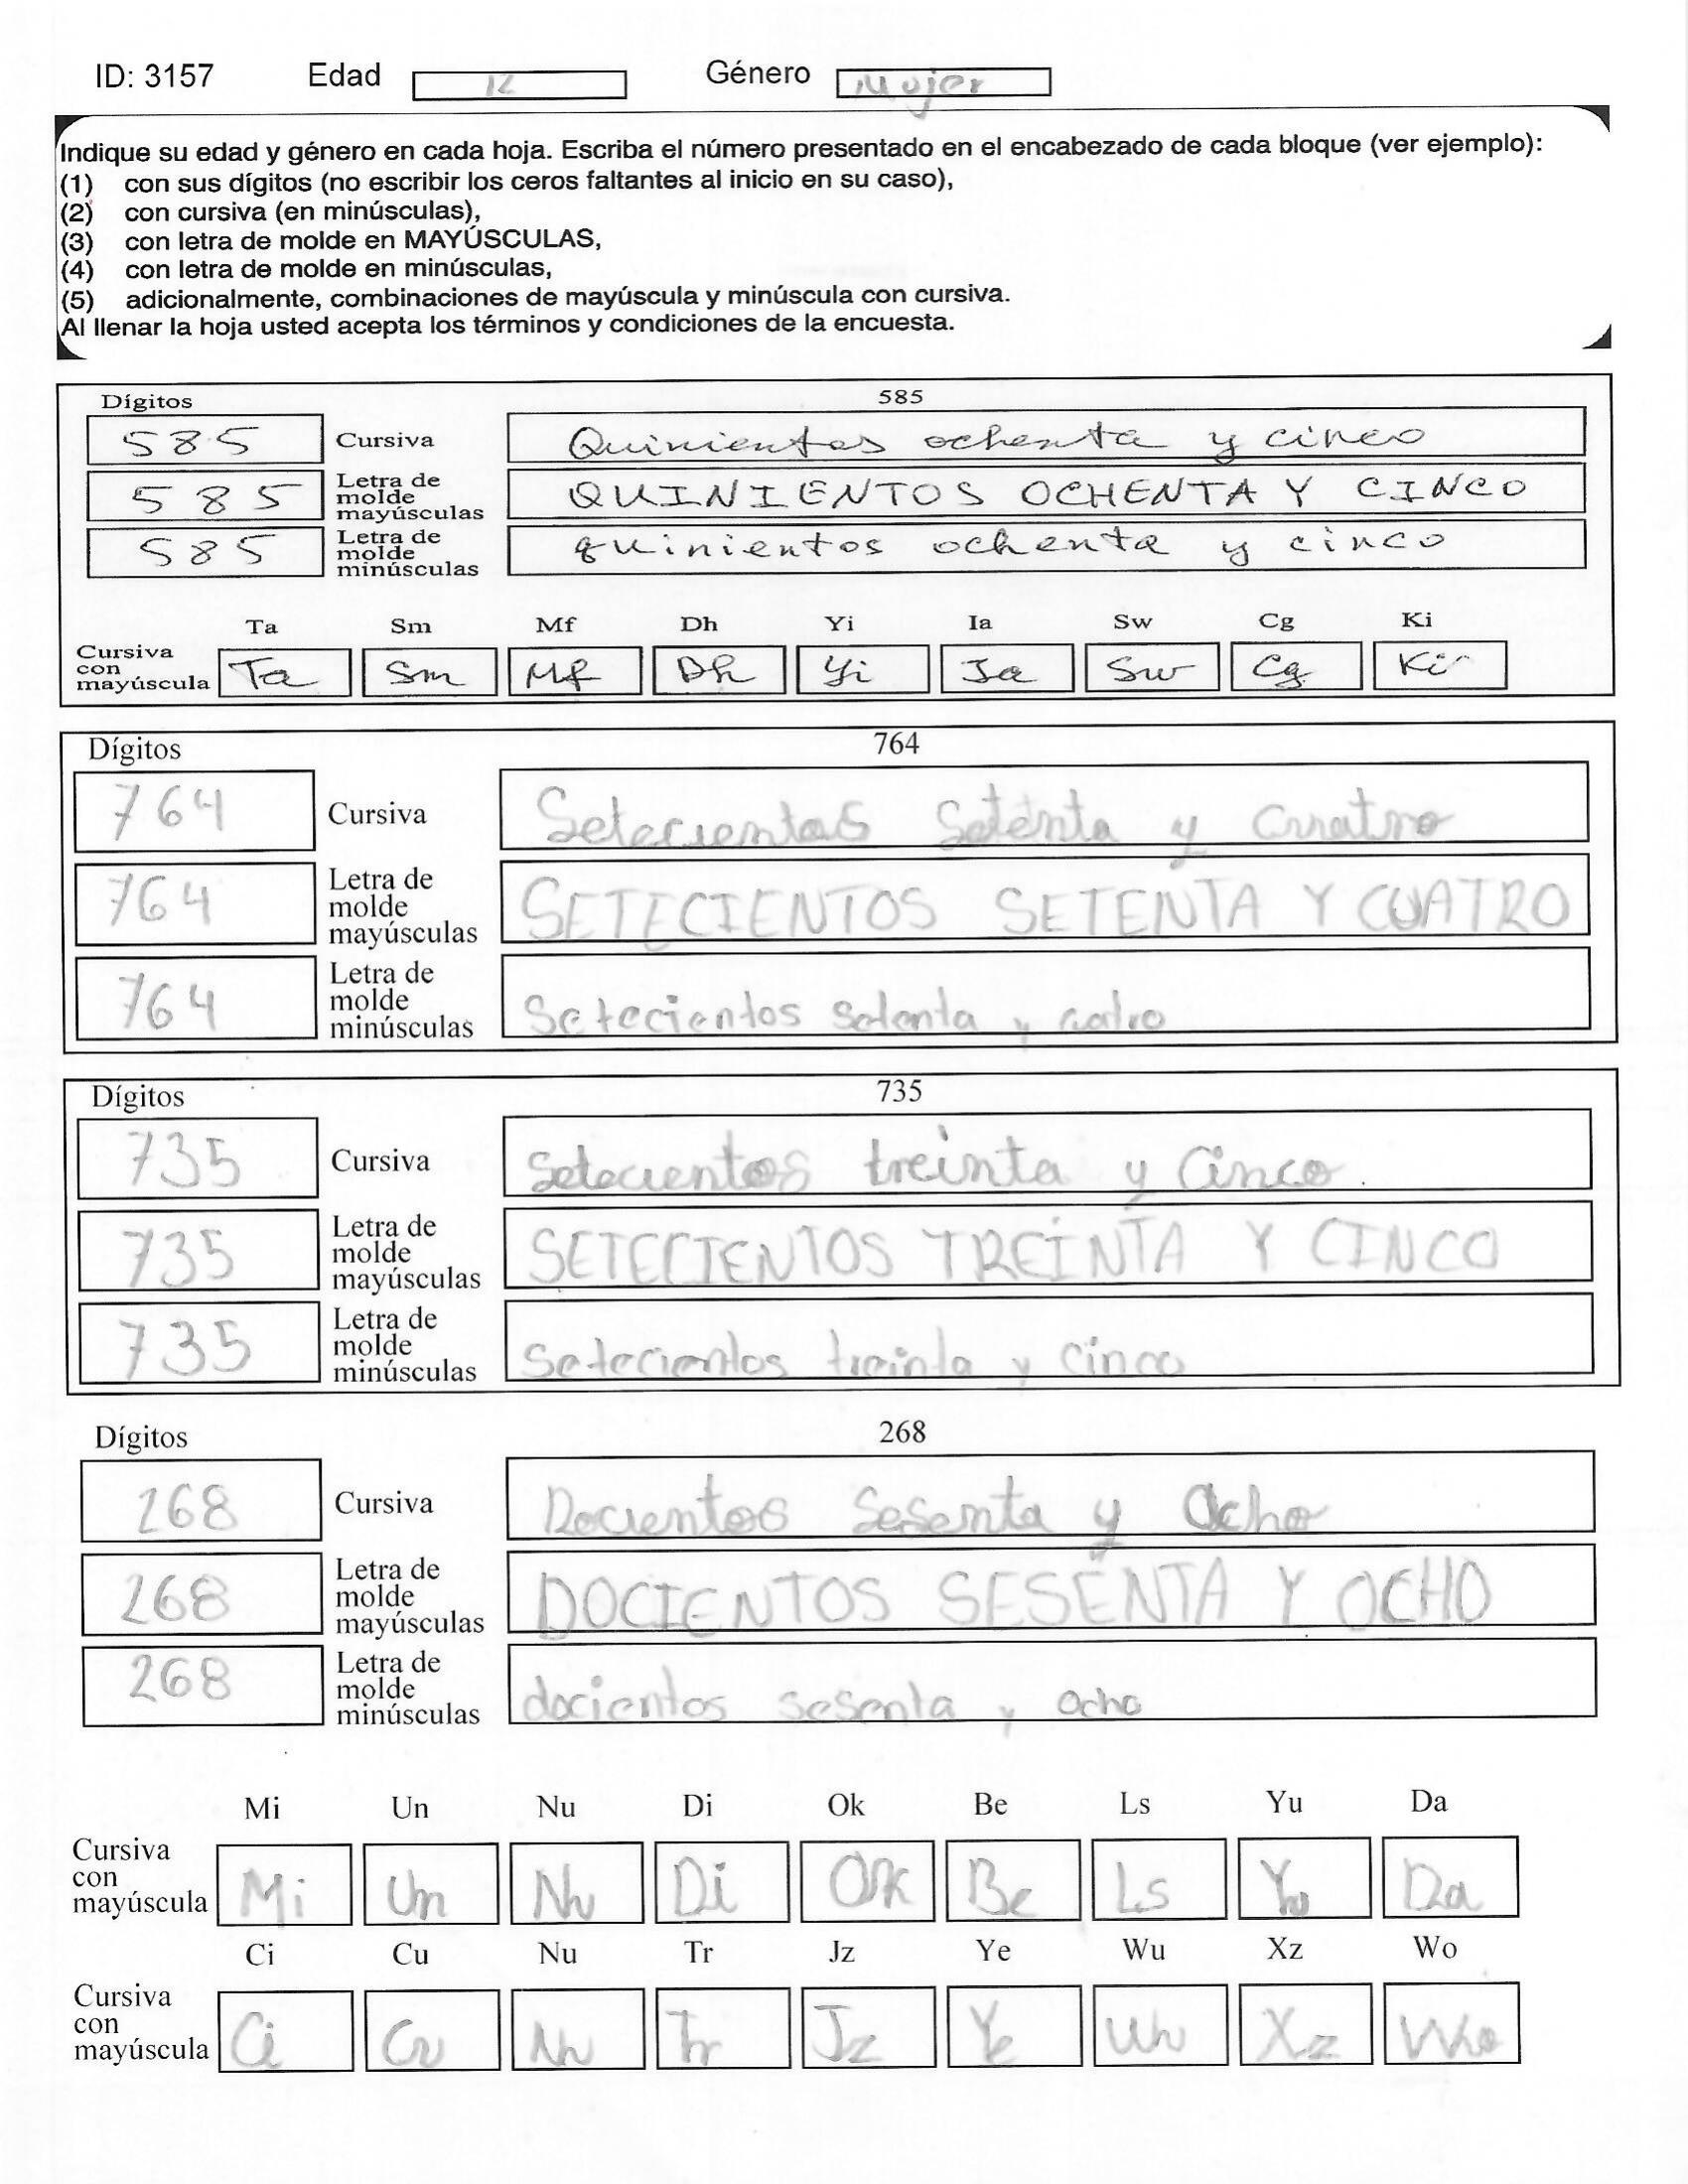 ID: 3157 Edad 12 Género Mujer
Indique su edad y género en cada hoja. Escriba el número presentado en el encabezado de cada bloque (ver ejemplo):
(1) con sus dígitos (no escribir los ceros faltantes al inicio en su caso),
(2) con cursiva (en minúsculas),
(3) con letra de molde en MAYÚSCULAS,
(4) con letra de molde en minúsculas,
(5) adicionalmente, combinaciones de mayúscula y minúscula con cursiva.
Al llenar la hoja usted acepta los términos y condiciones de la encuesta.
Dígitos 585
585 Cursiva Quinientos ochenta y cinco
585 Letra de molde mayúsculas QUINIENTOS OCHENTA Y CINCO
585 Letra de molde minúsculas quinientos ochenta y cinco
Ta Sm Mf Dh Yi Ia Sw Cg Ki
Cursiva con mayúscula Ta Sm Mf Dh Yi Ia Sw Cg Ki
Dígitos 764
764 Cursiva Setecientos Setenta y Cuatro
764 Letra de molde mayúsculas SETECIENTOS SETENTA Y CUATRO
764 Letra de molde minúsculas Setecientos setenta y cuatro
Dígitos 735
735 Cursiva Setecientos treinta y Cinco
735 Letra de molde mayúsculas SETECIENTOS TREINTA Y CINCO
735 Letra de molde minúsculas Setecientos treinta y cinco
Dígitos 268
268 Cursiva Docientos Sesenta y Ocho
268 Letra de molde mayúsculas DOCIENTOS SESENTA Y OCHO
268 Letra de molde minúsculas docientos sesenta y ocho
Mi Un Nu Di Ok Be Ls Yu Da
Cursiva con mayúscula Mi Un Nu Di Ok Be Ls Yu Da
Ci Cu Nu Tr Jz Ye Wu Xz Wo
Cursiva con mayúscula Ci Cu Nu Tr Jz Ye Wu Xz Wo